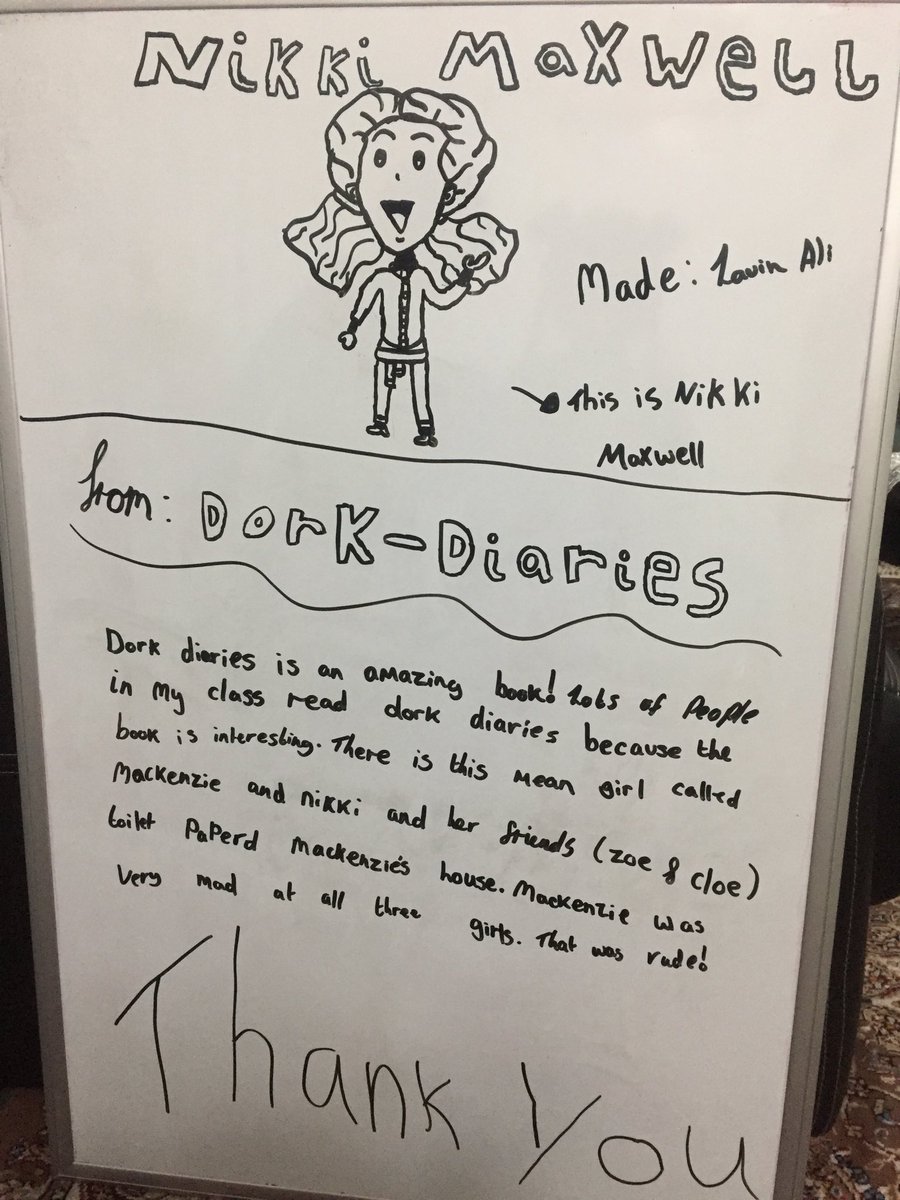 Nikki Maxwell
Made: Lavin Ali
This is Nikki
Maxwell
from: Dork-Diaries
Dork diaries is an amazing book! Lots of People
in my class read dork diaries because the
book is interesting. There is this mean girl called
Mackenzie and nikki and her friends (zoe & cloe)
toilet PaPerd Mackenzie's house. Mackenzie was
Very mad at all three girls. That was rude!
Thank You